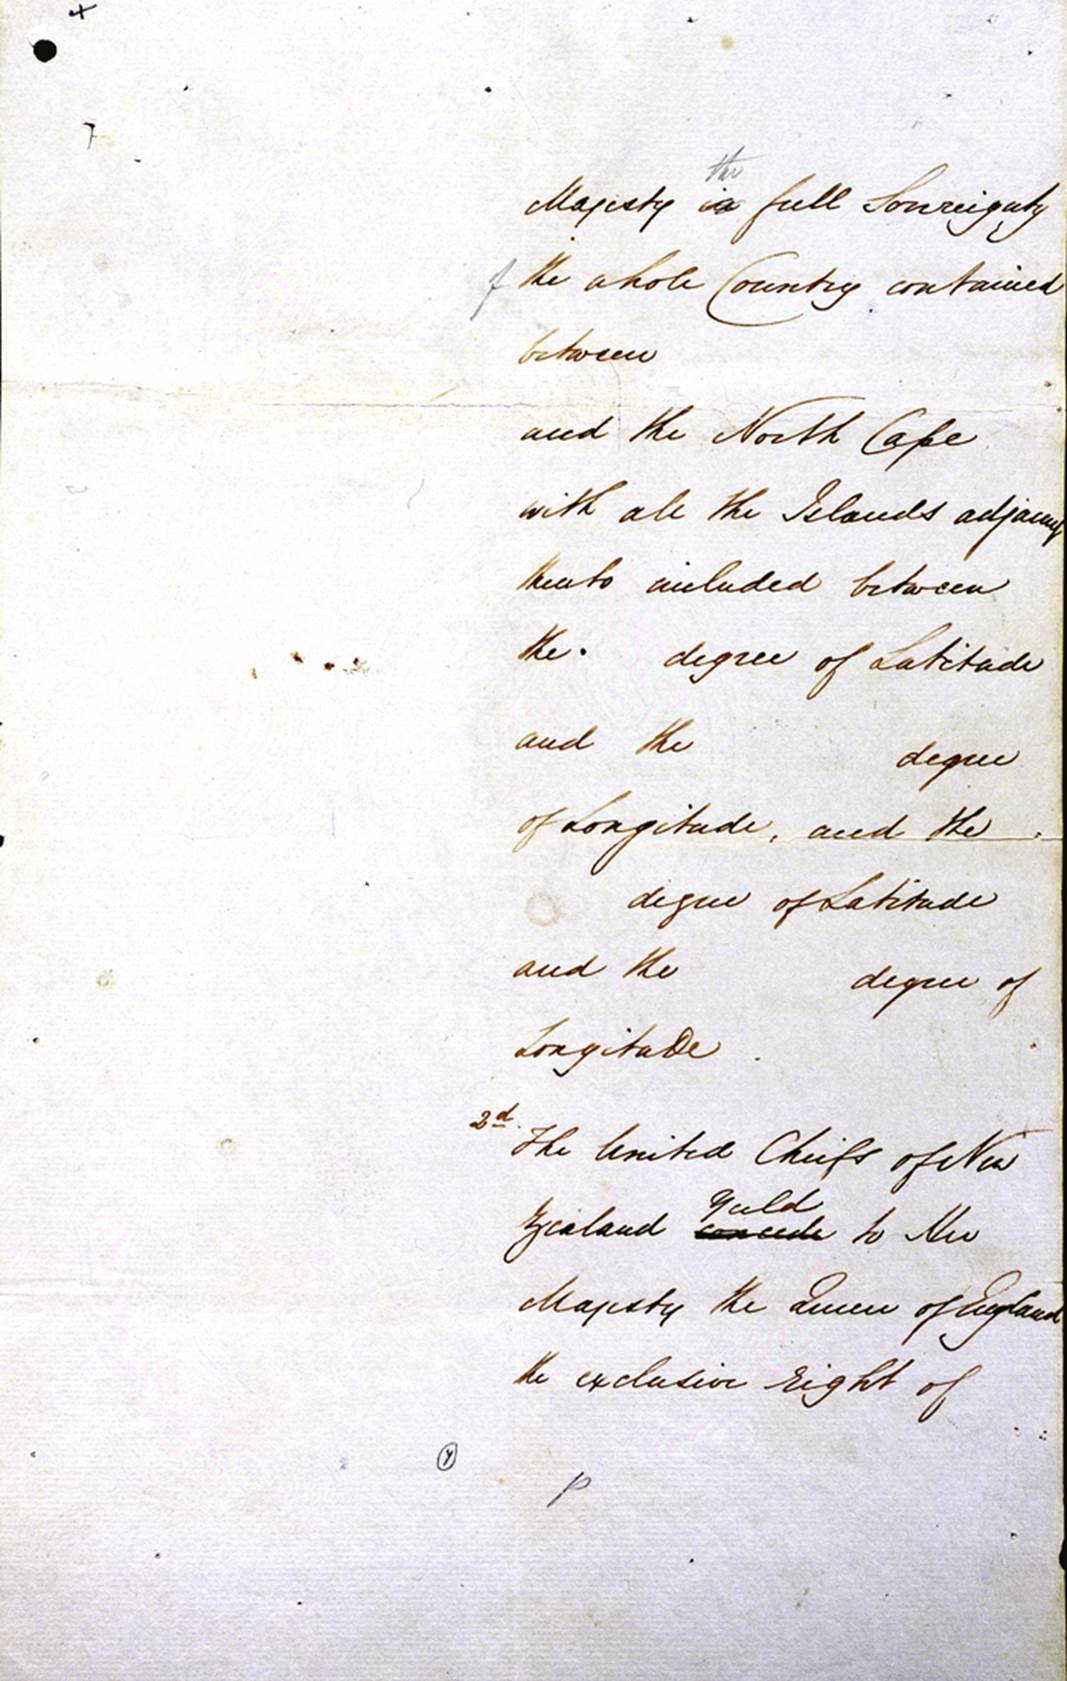 7
the
Majesty in full Sovreignty
of the whole Country contained
between
and the North Cape
with all the Islands adjacent
thereto included between
the degree of Latitude
and the degree
of Longitude, and the
degree of Latitude
and the degree of
Longitude.
2d. The United Chiefs of New
yield
Zealand concede to Her
Majesty the Queen of England
the exclusive Right of